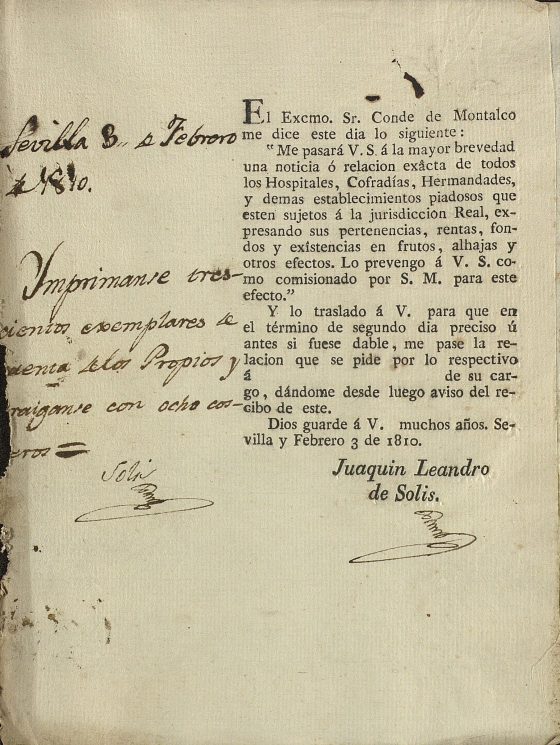 Sevilla 3 de Febrero
de 1810.
Ymprimanse tres-
cientos exemplares de
cuenta de los Propios y
traiganse con ocho cos-
teros =
Solis
El Excmo. Sr. Conde de Montalco
me dice este dia lo siguiente:
"Me pasará V. S. á la mayor brevedad
una noticia ó relacion exâcta de todos
los Hospitales, Cofradías, Hermandades,
y demas establecimientos piadosos que
esten sujetos á la jurisdiccion Real, ex-
presando sus pertenencias, rentas, fon-
dos y existencias en frutos, alhajas y
otros efectos. Lo prevengo á V. S. co-
mo comisionado por S. M. para este
efecto."
Y lo traslado á V. para que en
el término de segundo dia preciso ú
antes si fuese dable, me pase la re-
lacion que se pide por lo respectivo
á de su car-
go, dándome desde luego aviso del re-
cibo de este.
Dios guarde á V. muchos años. Se-
villa y Febrero 3 de 1810.
Juaquin Leandro
de Solis.